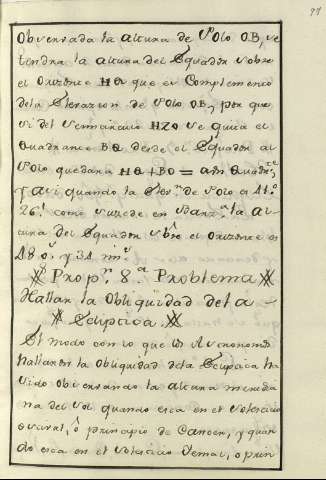 97
Observada la altura de Polo OB, se
tendra la altura del Equador sobre
el Orizonte HQ que es Complemento
dela Elevazion de Polo OB, por que
si del semicirculo HZO se quita el
Quadrante BQ desde el Equador al
Polo quedara HQ + BO = a un Quadr.te
y asi quando la Elev.n de Polo es 41.º
26.' como sucede en Barz.na la al
tura del Equador sb.re el Orizonte es
48 º y 34 m.s
Prop.n 8.a Problema
Hallar la Obliqüidad de la
Ecliptica.
El modo con lo que los Astronomos
hallaron la Obliquidad dela Ecliptica ha
sido observando la altura meredia
na del Sol quando esta en el Solesticio
estival, ô principio de Cancer, y quan
do esta en el Solesticio Iemal, o prin